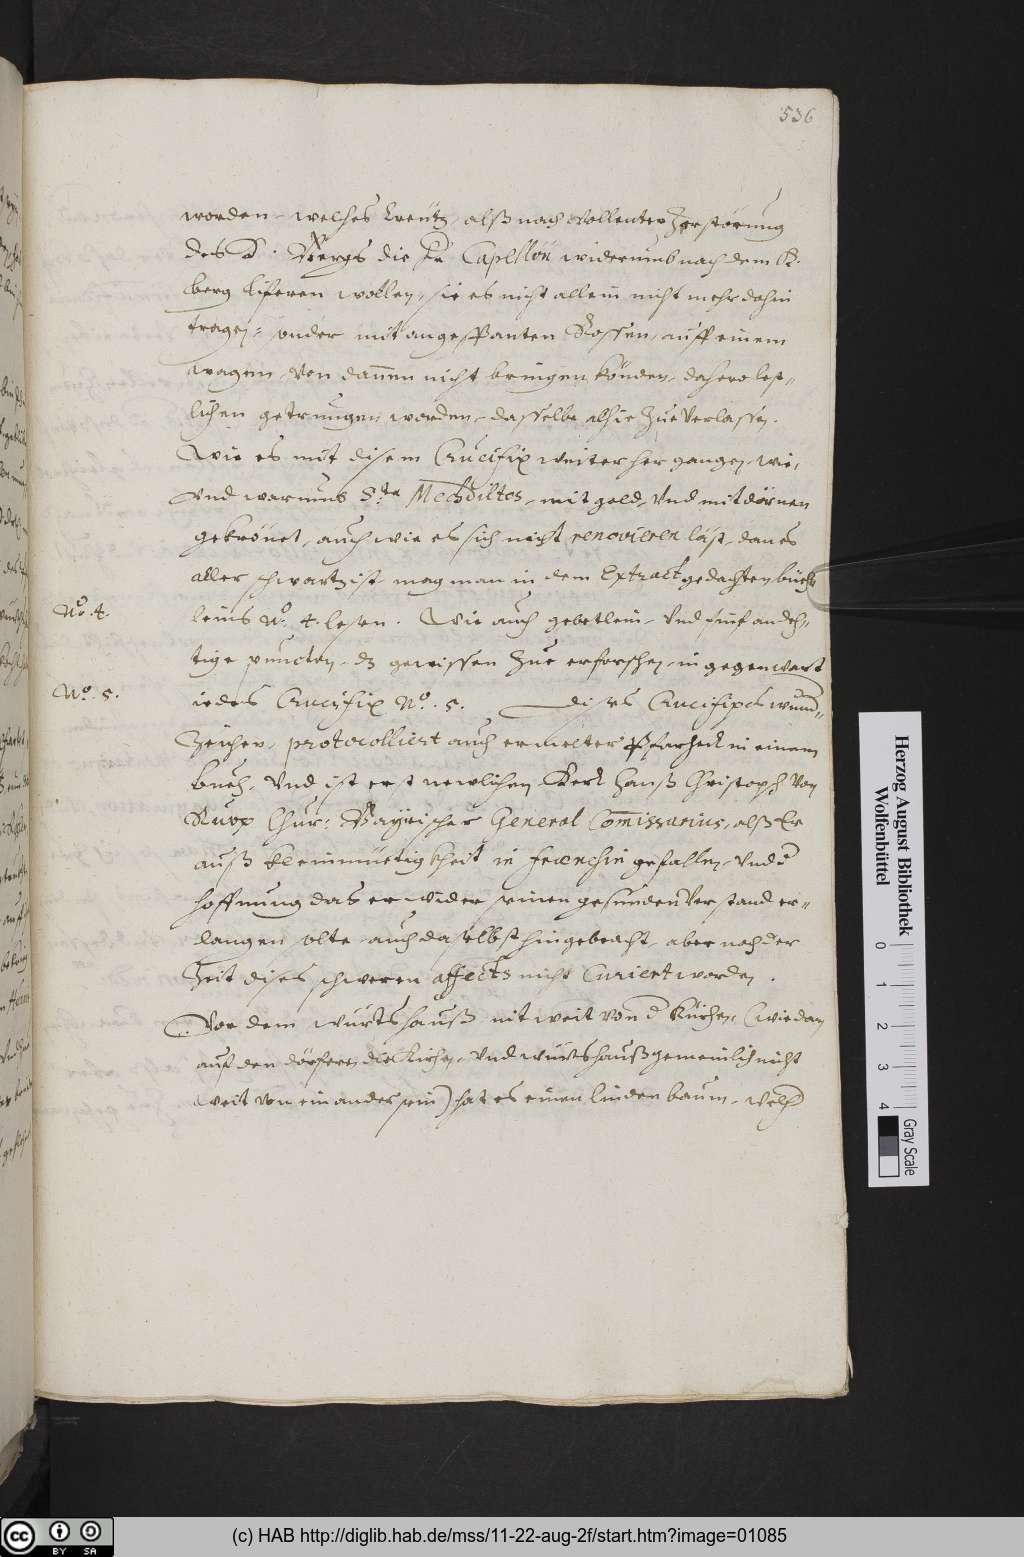 536
worden, welches Creütz, alß nach vollenter Zerstörung
des Bergs die widerumb nach dem B.
berg liferen wollen, sie es nicht allein nicht mehr dahin
tragen, sonder mit angespanten Rossen, auff einem
wagen, von dannen nicht bringen könden, dahero lest-
lichen getrungen worden, dasselbe alhie Zue verlassen.
Wie es mit disem Crucifix weiter hergangen, wie,
vnd warumb S.ta Mechdiltes, mit gold, vnd mit dörnen
gekrönet, auch wie es sich nicht renovieren läst, dan es
aller schwartz ist, mag man in dem Extract gedachten büech
leins No. 4. lesen. Wie auch gebetlein, vnd fünf andech-
No. 4.
tige puncten, dz gewissen Zue erforschen, in gegenwart
iedes Crucifix No. 5. dises Crucifixes wund-
No. 5.
Zeichen, protocolliert auch ermelter Pfarherr in einem
buech, vnd ist erst newlichen Herr Hanß Christoph von
Rupp Chur: Bayrischer General Comissarius, alß Er
auß kleinmüetigkheit in gefallen, vnd d
hoffnung das er wider seinen gesunden verstand er-
langen solte, auch daselbst hingebracht, aber nach der
Zeit dises schweren affects nicht Curiert worden.
Vor dem würtshauß nit weit von d Kürchen, (wie dan
auf den dörferen die Kirchen, vnd würtshauß gemeinlich nicht
weit von einander sein) hat es einen lindenbaum, welch
Herzog August Bibliothek
Wolfenbüttel
0 1 2 3 4
Gray Scale
cc BY SA
(c) HAB http://diglib.hab.de/mss/11-22-aug-2f/start.htm?image=01085